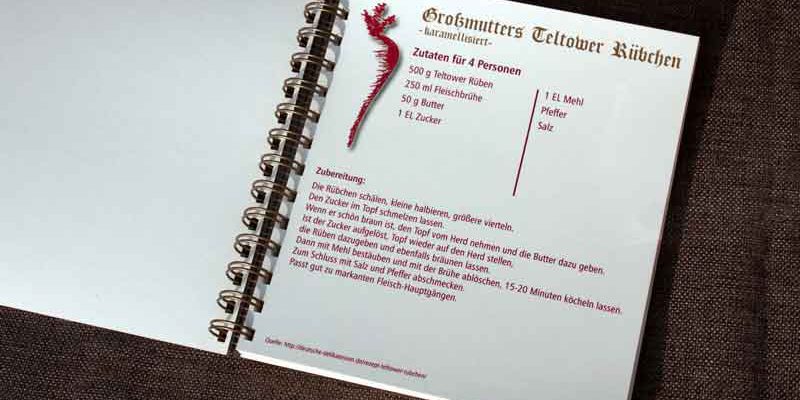 Großmutters Teltower Rübchen
-karamellisiert-
Zutaten für 4 Personen
500 g Teltower Rüben
250 ml Fleischbrühe
50 g Butter
1 EL Zucker
1 EL Mehl
Pfeffer
Salz
Zubereitung:
Die Rübchen schälen, kleine halbieren, größere vierteln.
Den Zucker im Topf schmelzen lassen.
Wenn er schön braun ist, den Topf vom Herd nehmen und die Butter dazu geben.
Ist der Zucker aufgelöst, Topf wieder auf den Herd stellen,
die Rüben dazugeben und ebenfalls bräunen lassen.
Dann mit Mehl bestäuben und mit der Brühe ablöschen, 15-20 Minuten köcheln lassen.
Zum Schluss mit Salz und Pfeffer abschmecken.
Passt gut zu markanten Fleisch-Hauptgängen.
Quelle: http://deutsche-delikatessen.de/rezept-teltower-rubchen/